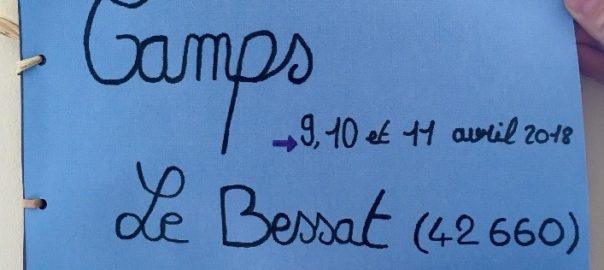 Camps
→ 9, 10 et 11 avril 2018
Le Bessat (42 660)